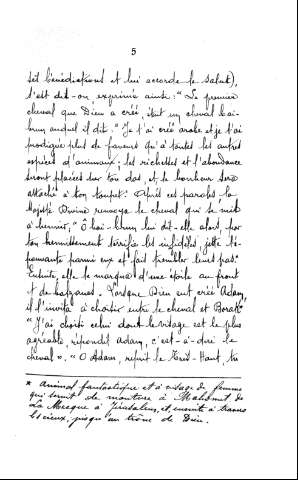 5
ses bénédictions et lui accorde le salut),
s'est dit-on exprimé ainsi: "Le premier
cheval que Dieu a créé était un cheval bai-
brun auquel il dit: "Je t'ai créé arabe et je t'ai
prodigué plus de faveurs qu'à toutes les autres
espèces d'animaux; les richesses et l'abondance
seront placées sur ton dos et le bonheur sera
attaché à ton toupet." Après ces paroles la
Majesté Divine renvoya le cheval qui se mit
à hennir, "Ô bai-brun lui dit-elle alors, par
ton hennissement terrifie les infidèles, jette l'é-
pouvante parmi eux et fait trembler leurs pas."
Ensuite, elle le marqua d'une étoile au front
et de balzanes. Lorsque Dieu eut créé Adam,
il l'invita à choisir entre le cheval et Borak*
"J'ai choisi celui dont le visage est le plus
agréable, répondit Adam, c'est-à-dire le
cheval". "O Adam, reprit le Très-Haut, tu
* Animal fantastique et à visage de femme
qui servit de monture à Mahomet de
La Mecque à Jérusalem, et, ensuite à travers
les cieux, jusqu'au trône de Dieu.